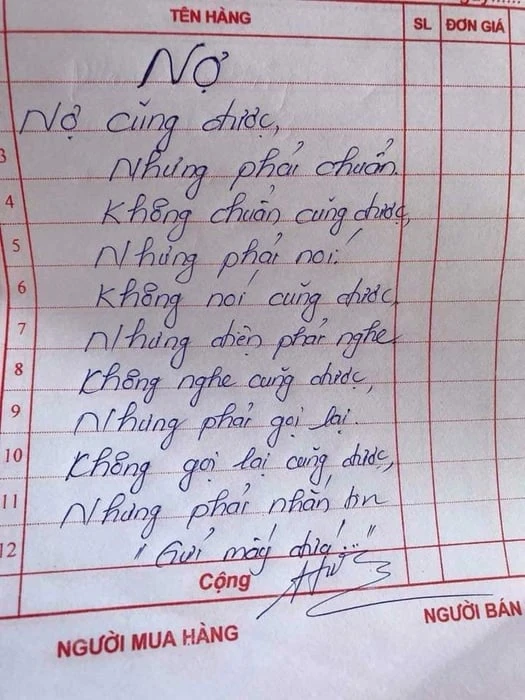 TÊN HÀNG SL ĐƠN GIÁ
Nợ
Nợ cũng được,
3 Nhưng phải chuẩn.
4 Không chuẩn cũng được,
5 Nhưng phải nói.
6 Không nói cũng được,
7 Nhưng điện phải nghe
8 Không nghe cũng được,
9 Nhưng phải gọi lại.
10 Không gọi lại cũng được,
11 Nhưng phải nhắn tin
12 "Gửi mấy
Cộng
NGƯỜI MUA HÀNG NGƯỜI BÁN